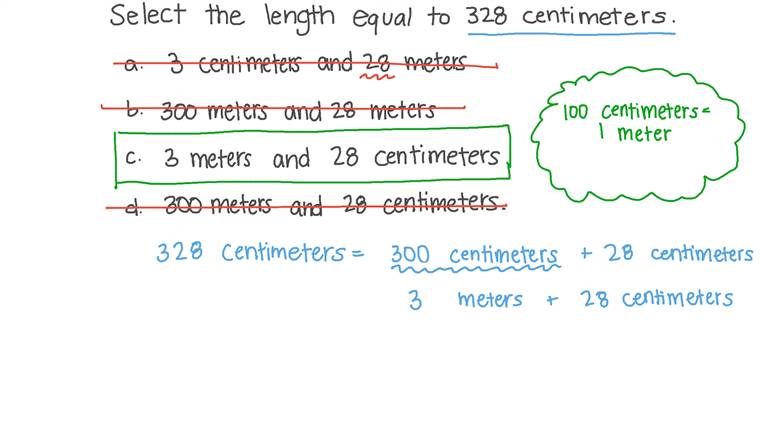 Select the length equal to 328 centimeters.
a. 3 centimeters and 28 meters
b. 300 meters and 28 meters
c. 3 meters and 28 centimeters
d. 300 meters and 28 centimeters.
100 centimeters =
1 meter
328 centimeters = 300 centimeters + 28 centimeters
3 meters + 28 centimeters